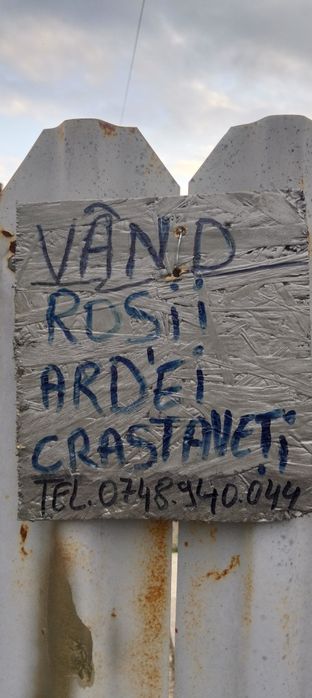 VÂND
ROSii
ARDEi
CRASTAVEȚi
TEL. 0748.940.044